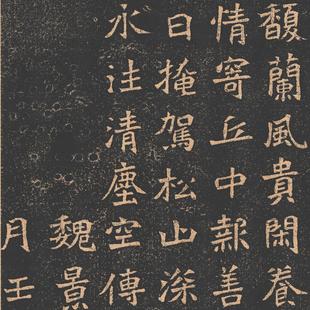 馥蘭風貴閑養
情寄丘中報善
日掩駕松山深
永注清塵空傳
魏景
月壬